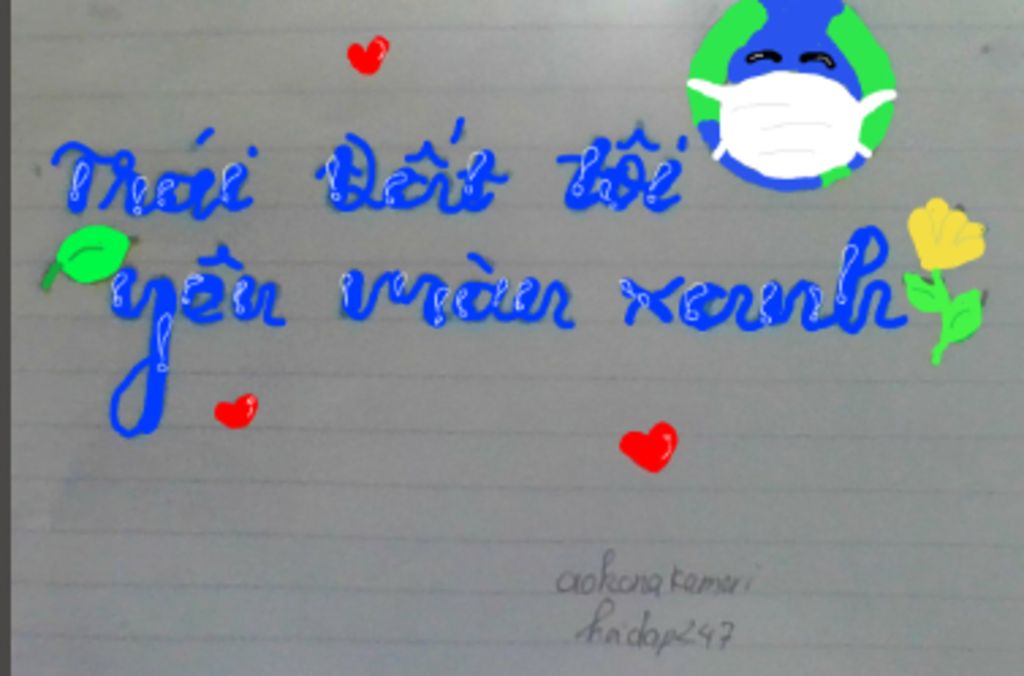 Trái Đất tôi
yêu màu xanh
aokonakemeri
hoidap247